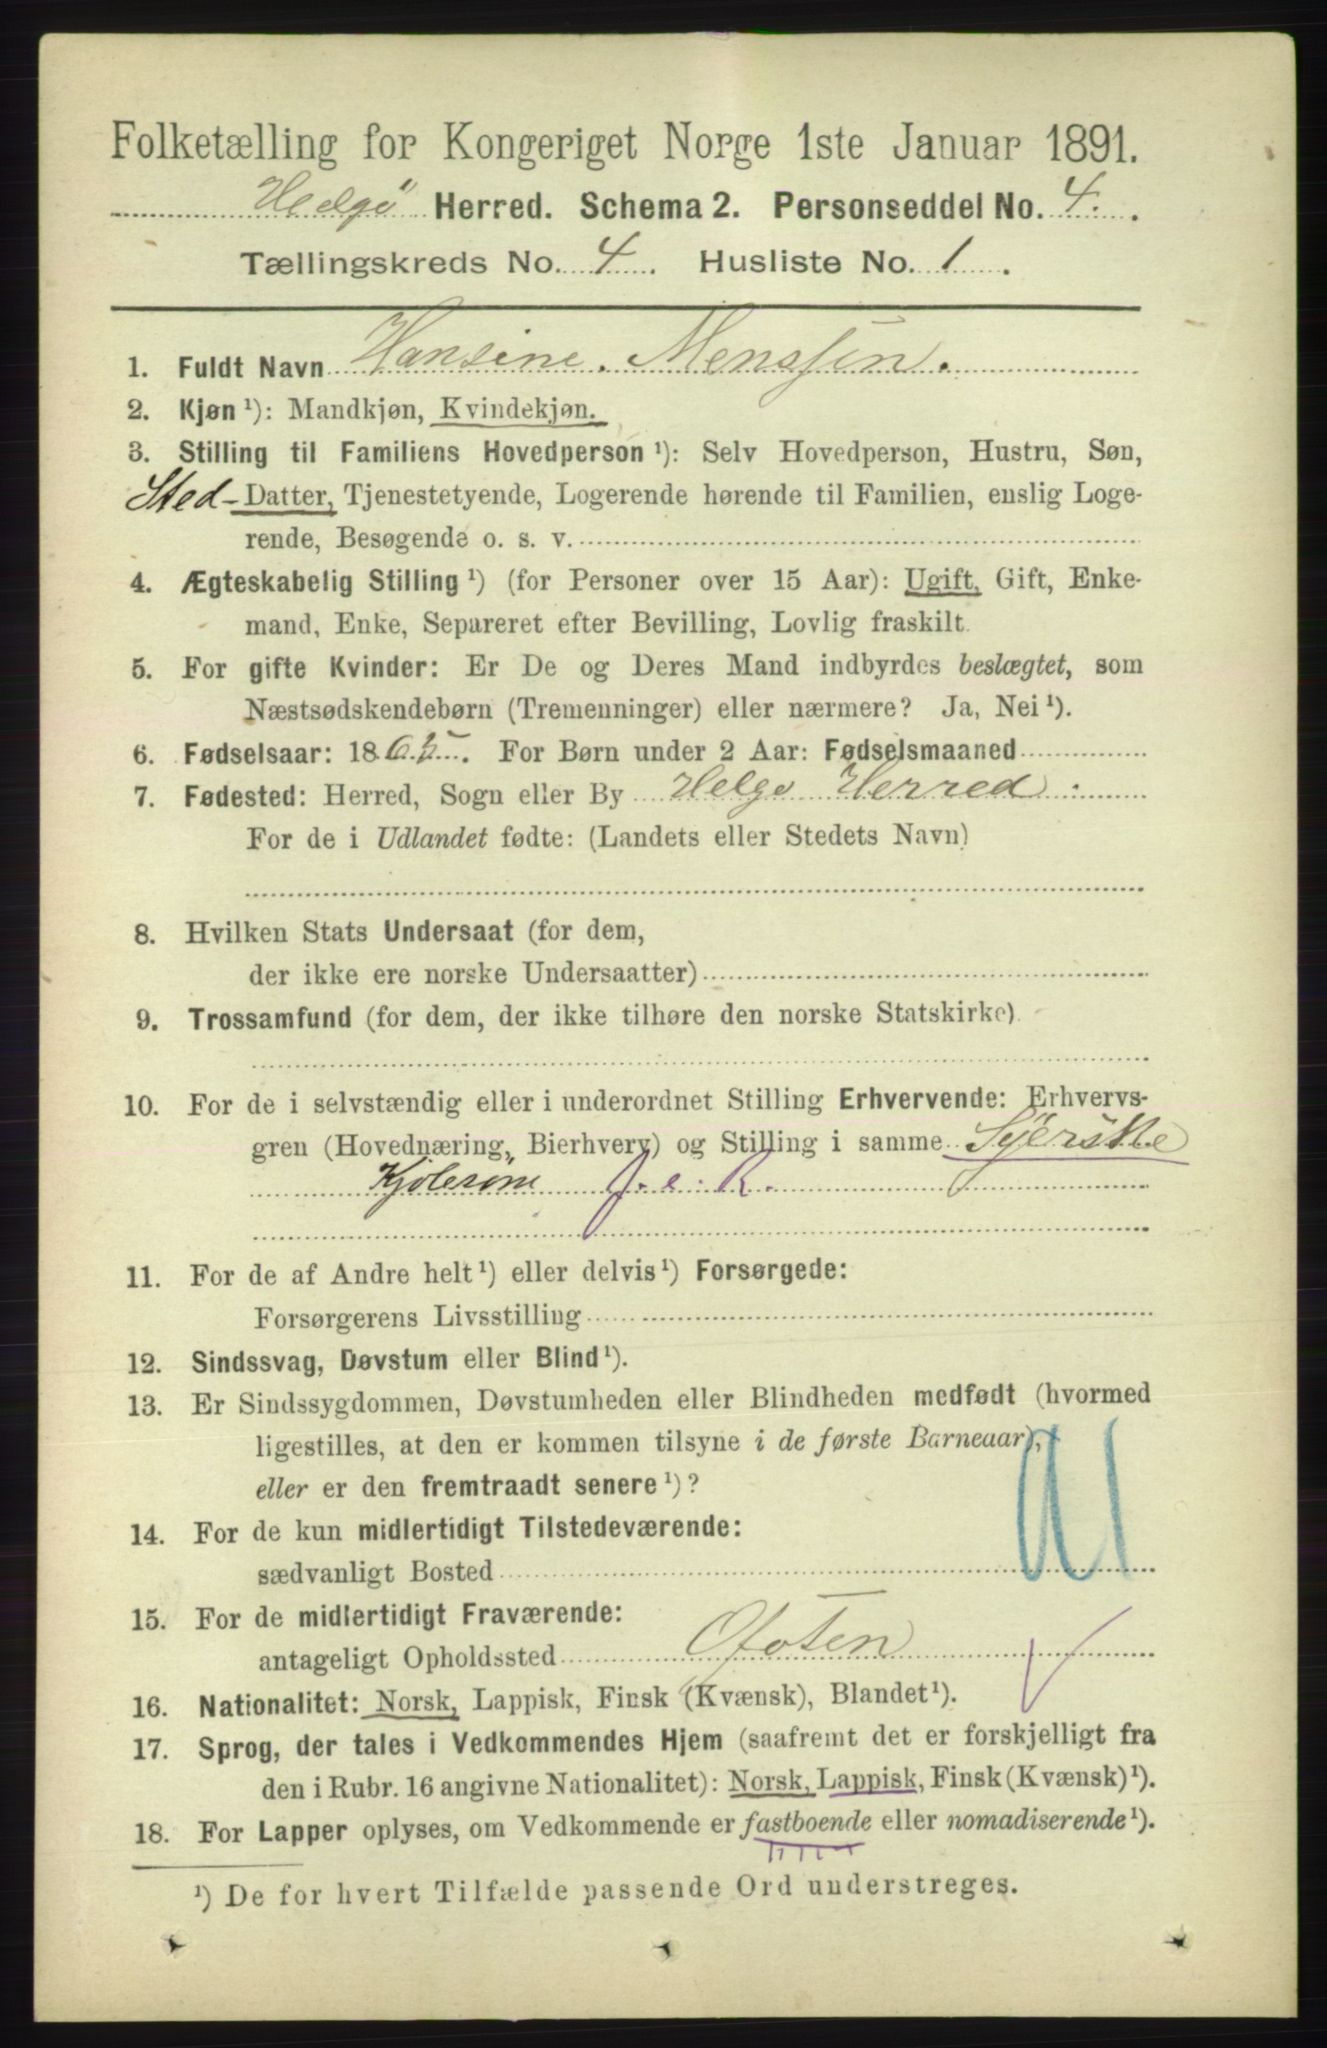 Folketælling for Kongeriget Norge 1ste Januar 1891.
Helgø Herred. Schema 2. Personseddel No. 4.
Tællingskreds No. 4. Husliste No. 1.
1. Fuldt Navn Hansine. Menssen.
2. Kjøn ¹): Mandkjøn, Kvindekjøn.
3. Stilling til Familiens Hovedperson ¹): Selv Hovedperson, Hustru, Søn,
Sted- Datter, Tjenestetyende, Logerende hørende til Familien, enslig Loge-
rende, Besøgende o. s. v.
4. Ægteskabelig Stilling ¹) (for Personer over 15 Aar): Ugift, Gift, Enke-
mand, Enke, Separeret efter Bevilling, Lovlig fraskilt.
5. For gifte Kvinder: Er De og Deres Mand indbyrdes beslægtet, som
Næstsødskendebørn (Tremenninger) eller nærmere? Ja, Nei ¹).
6. Fødselsaar: 1865. For Børn under 2 Aar: Fødselsmaaned
7. Fødested: Herred, Sogn eller By Helgø Herred
For de i Udlandet fødte: (Landets eller Stedets Navn)
8. Hvilken Stats Undersaat (for dem,
der ikke ere norske Undersaatter)
9. Trossamfund (for dem, der ikke tilhøre den norske Statskirke).
10. For de i selvstændig eller i underordnet Stilling Erhvervende: Erhvervs-
gren (Hovednæring, Bierhverv) og Stilling i samme Syerske
Kjolesøm
11. For de af Andre helt ¹) eller delvis ¹) Forsørgede:
Forsørgerens Livsstilling
12. Sindssvag, Døvstum eller Blind ¹).
13. Er Sindssygdommen, Døvstumheden eller Blindheden medfødt (hvormed
ligestilles, at den er kommen tilsyne i de første Barneaar),
eller er den fremtraadt senere ¹)?
14. For de kun midlertidigt Tilstedeværende:
sædvanligt Bosted
15. For de midlertidigt Fraværende:
antageligt Opholdssted Ofoten
16. Nationalitet: Norsk, Lappisk, Finsk (Kvænsk), Blandet ¹).
17. Sprog, der tales i Vedkommendes Hjem (saafremt det er forskjelligt fra
den i Rubr. 16 angivne Nationalitet): Norsk, Lappisk, Finsk (Kvænsk) ¹).
18. For Lapper oplyses, om Vedkommende er fastboende eller nomadiserende ¹).
¹) De for hvert Tilfælde passende Ord understreges.